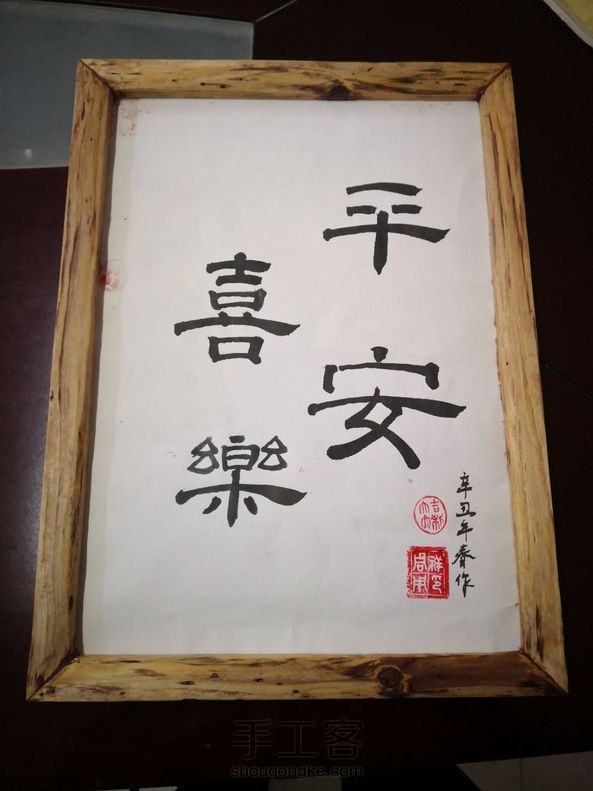 平安
喜樂
辛丑年春作
手工客
shougongke.com